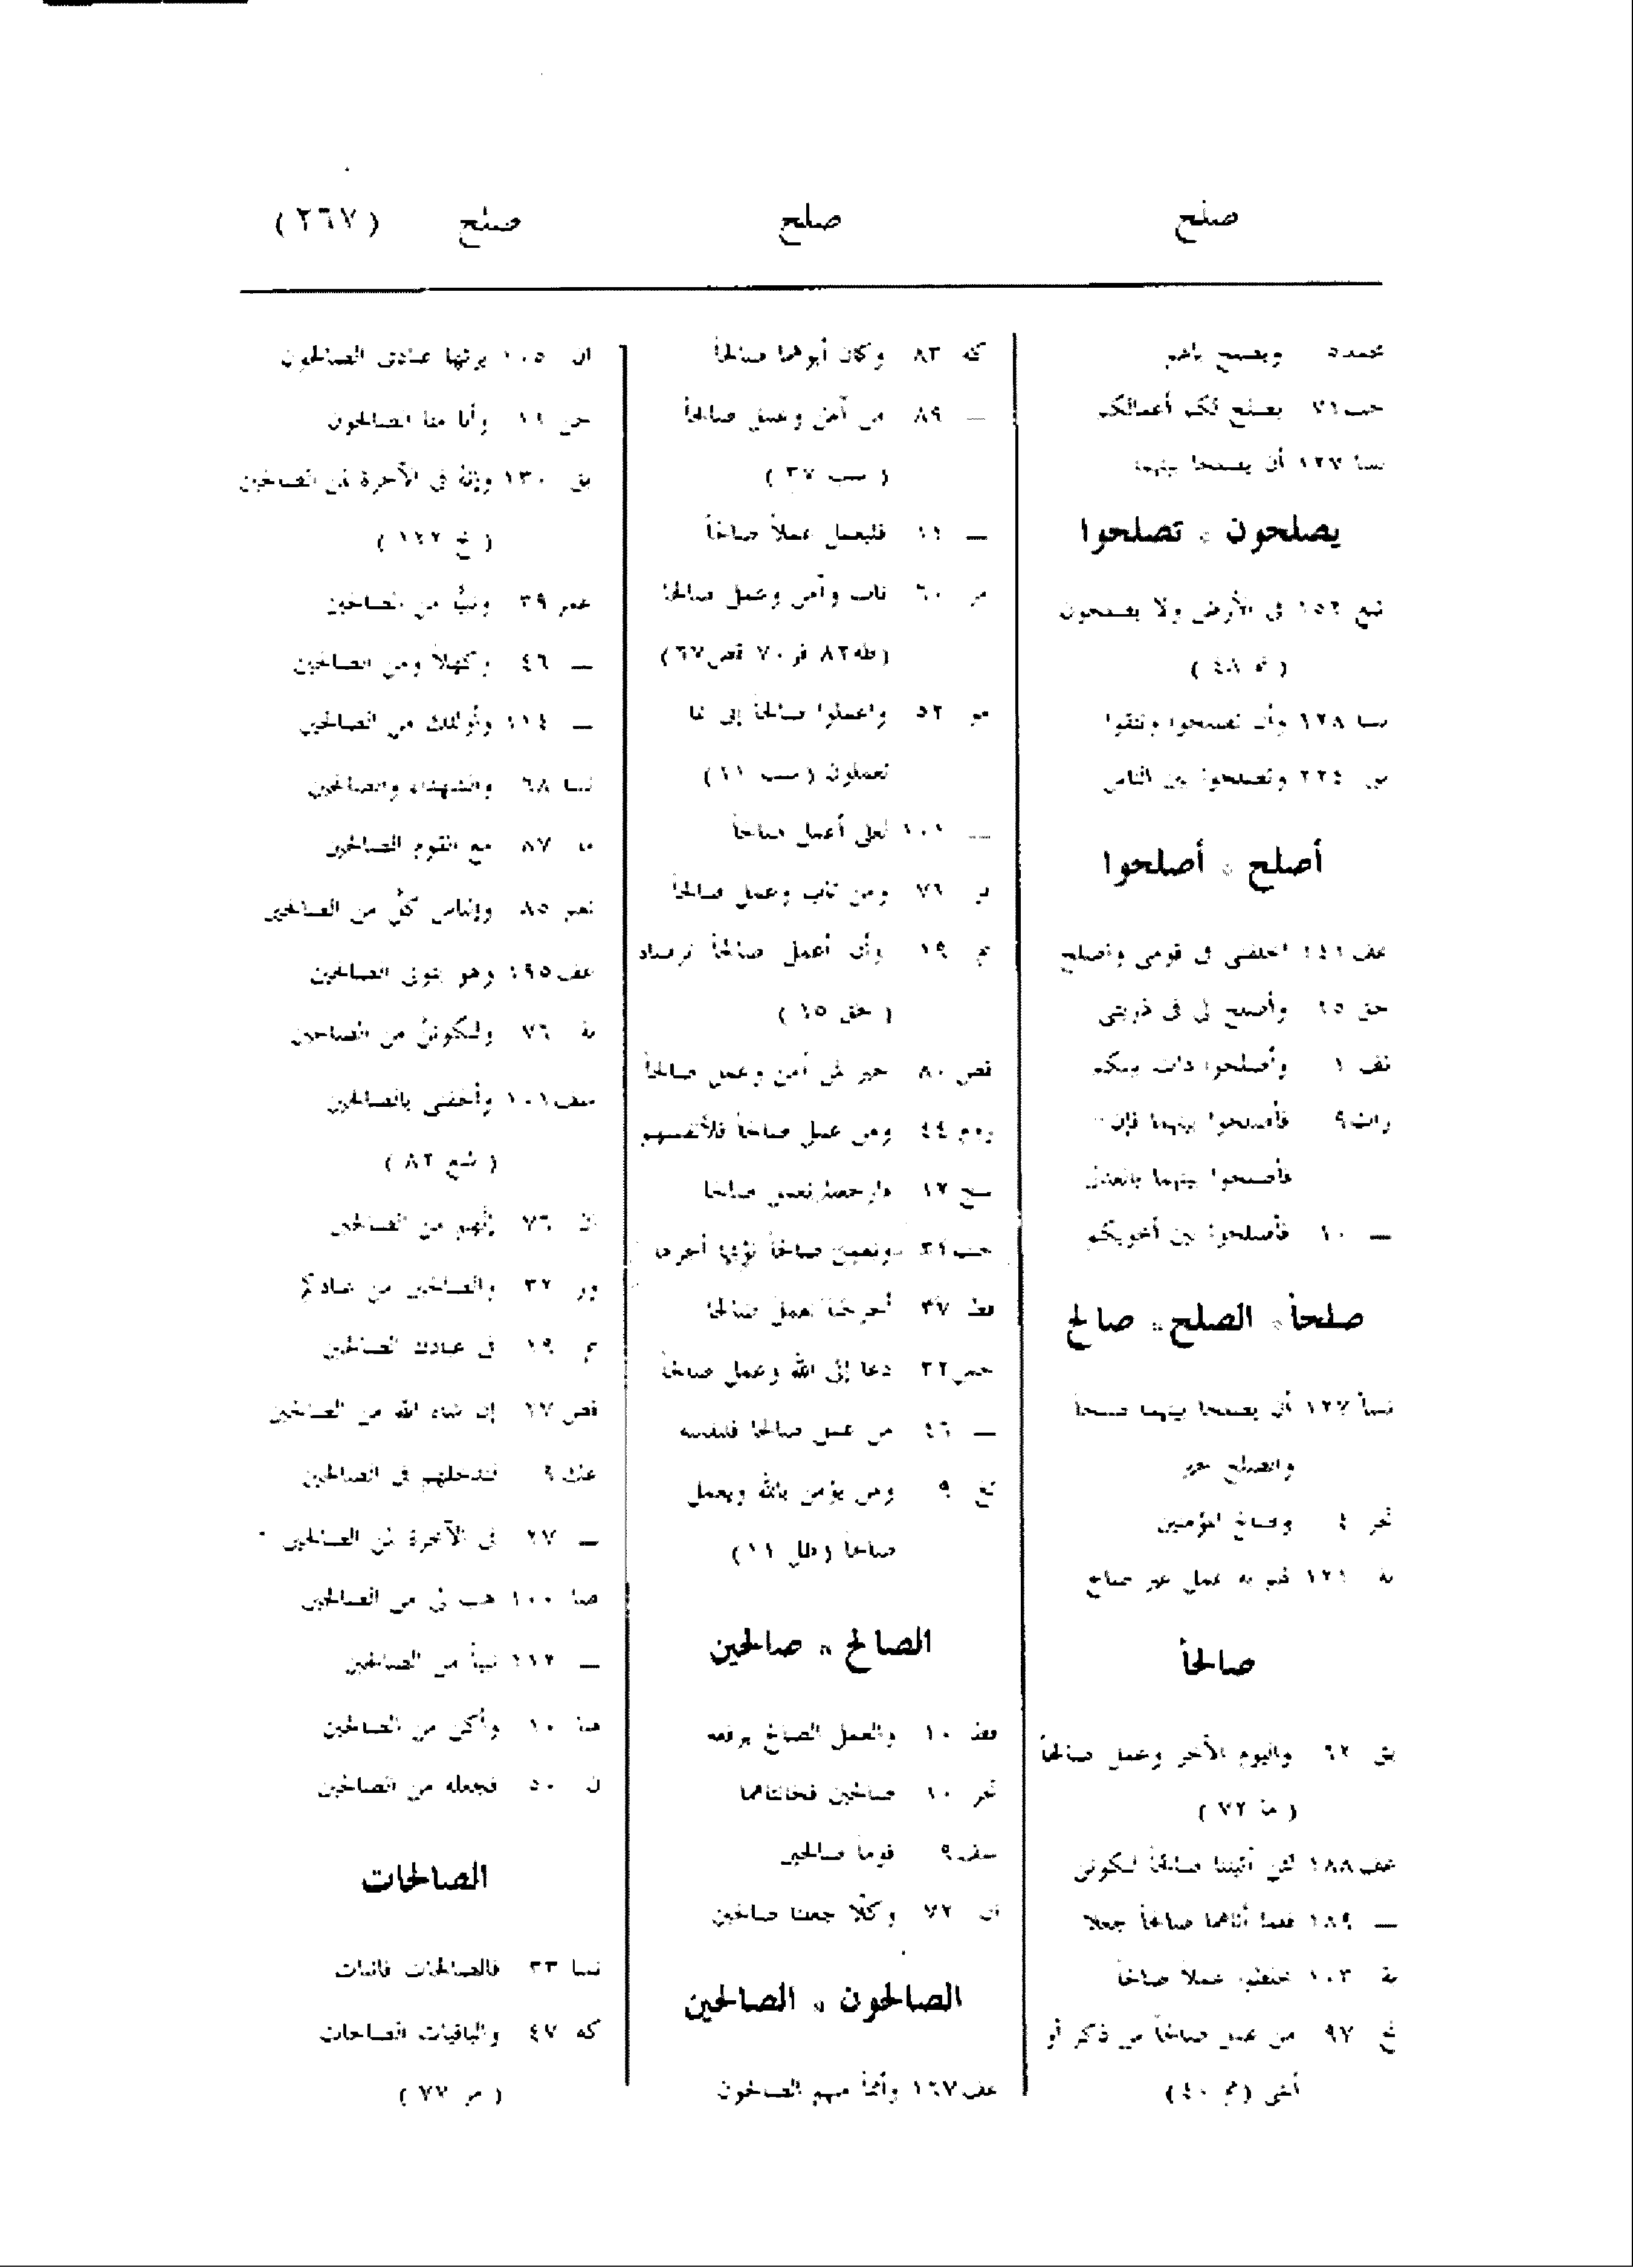 صلح صلح صلح (٢٦٧)
محمد٥ ويصلح بالهم
حب٧١ يصلح لكم أعمالكم
نسا ١٢٧ أن يصلحا بينهما
يصلحون * تصلحوا
شع ١٥٢ فى الأرض ولا يصلحون
( نم ٤٨ )
نسا ١٢٨ وأن تصلحوا وتتقوا
٢٢٤ وتصلحوا بين الناس
أصلح * أصلحوا
عف١٤١ اخلفنى فى قومى وأصلح
حق ١٥ وأصلح لى فى ذريتى
نف ١ وأصلحوا ذات بينكم
رات٩ فأصلحوا بينهما فإن
فأصلحوا بينهما بالعدل
— ١٠ فأصلحوا بين أخويكم
صلحاً * الصلح * صالح
نسا ١٢٧ أن يصلحا بينهما صلحاً
والصلح خير
تحر ٤ وصالح المؤمنين
بة ١٢١ لهم به عمل غير صالح
صالحاً
بق ٦٢ واليوم الآخر وعمل صالحاً
( ما ٧٢ )
عف١٨٨ لئن آتيتنا صالحاً لنكونن
— ١٨٩ فلما آتاهما صالحاً جعلا
بة ١٠٣ خلطوا عملاً صالحاً
نح ٩٧ من عمل صالحاً من ذكر أو
أنثى (مم ٤٠)
كه ٨٣ وكان أبوهما صالحاً
— ٨٩ من آمن وعمل صالحاً
( سب ٣٧ )
— ١١ فليعمل عملاً صالحاً
مر ٦٠ تاب وآمن وعمل صالحا
(طه٨٢ فر٧٠ قص٦٧)
مو ٥٢ واعملوا صالحاً إنى بما
تعملون (سب ١١)
— ١٠١ لعلى أعمل صالحاً
فر ٧١ ومن تاب وعمل صالحاً
نم ١٩ وأن أعمل صالحاً ترضاه
( حق ١٥ )
قص ٨٠ خير لمن آمن وعمل صالحاً
روم ٤٤ ومن عمل صالحاً فلأنفسهم
سج ١٢ فارجعنا نعمل صالحا
حب٣١ وتعمل صالحاً نؤتها أجرها
فط ٣٧ أخرجنا نعمل صالحا
حس٣٣ دعا إلى الله وعمل صالحاً
— ٤٦ من عمل صالحا فلنفسه
تغ ٩ ومن يؤمن بالله ويعمل
صالحاً (طل ١١)
الصالح * صالحين
فط ١٠ والعمل الصالح يرفعه
تحر ١٠ صالحين فخانتاهما
سف٩ قوماً صالحين
ان ٧٢ وكلاًّ جعلنا صالحين
الصالحون * الصالحين
عف١٦٧ وأمماً منهم الصالحون
ان ١٠٥ يرثها عبادى الصالحون
جن ١١ وأنا منا الصالحون
بق ١٣٠ وإنه فى الآخرة لمن الصالحين
( نح ١٢٢ )
عمر ٣٩ ونبيًّا من الصالحين
— ٤٦ وكهلاً ومن الصالحين
— ١١٤ وأولئك من الصالحين
نسا ٦٨ والشهداء والصالحين
ما ٨٧ مع القوم الصالحين
نعم ٨٥ وإلياس كلٌّ من الصالحين
عف١٩٥ وهو يتولى الصالحين
بة ٧٦ ولنكوننّ من الصالحين
سف١٠١ وألحقنى بالصالحين
( شع ٨٣ )
ان ٧٦ إنهم من الصالحين
ور ٣٢ والصالحين من عبادكم
نم ١٩ فى عبادك الصالحين
قص ٢٧ إن شاء الله من الصالحين
عنك٩ لندخلهم فى الصالحين
— ٢٧ فى الآخرة لمن الصالحين
صا ١٠٠ هب لى من الصالحين
— ١١٢ نبياً من الصالحين
منا ١٠ وأكن من الصالحين
ن ٥٠ فجعله من الصالحين
الصالحات
نسا ٣٣ فالصالحات قانتات
كه ٤٧ والباقيات الصالحات
( مر ٧٧ )